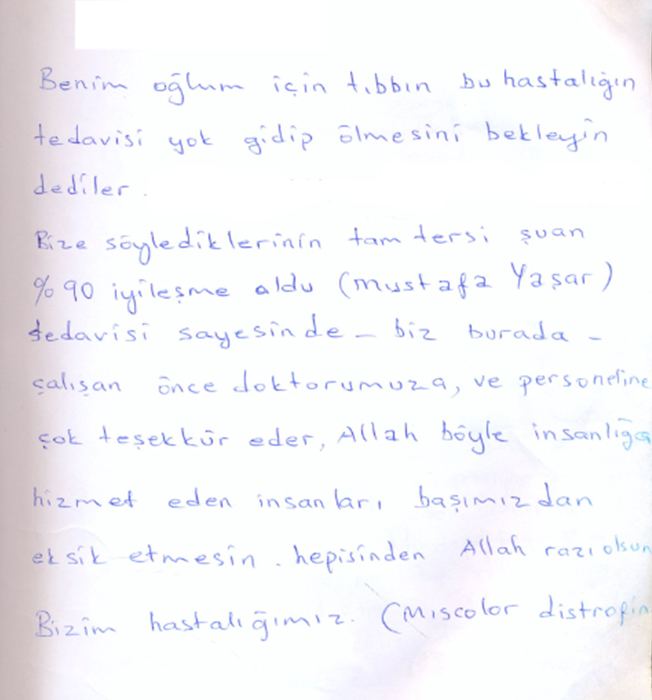 Benim oğlum için tıbbın bu hastalığın
tedavisi yok gidip ölmesini bekleyin
dediler.
Bize söylediklerinin tam tersi şuan
%90 iyileşme aldu (mustafa Yaşar)
tedavisi sayesinde - biz burada -
çalışan önce doktorumuza, ve personeline
çok teşekkür eder, Allah böyle insanlığa
hizmet eden insanları başımızdan
eksik etmesin. hepisinden Allah razı olsun
Bizim hastalığımız. (Mıscolor distrofin